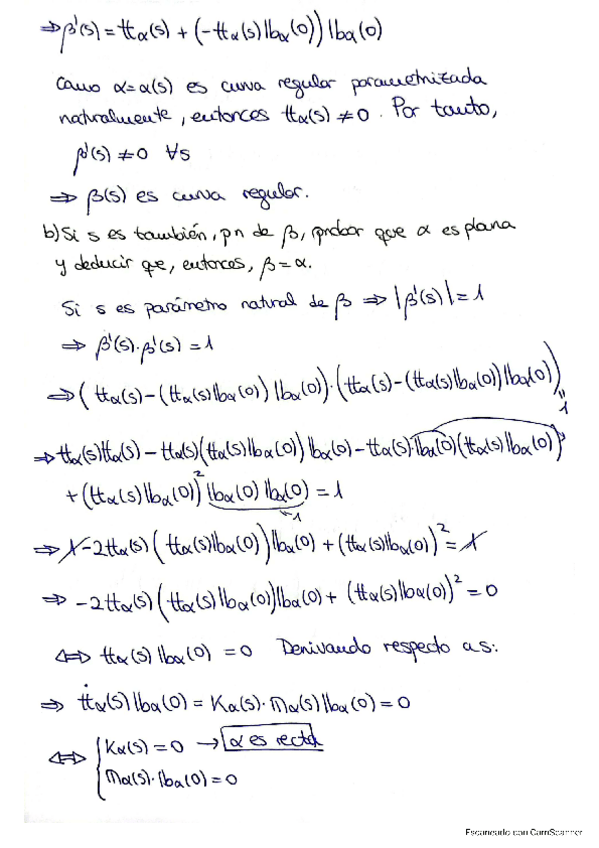 ⇒ β'(s) = 𝕥α(s) + (-𝕥α(s) 𝕓α(0)) 𝕓α(0)
Como α=α(s) es curva regular parametrizada
naturalmente, entonces 𝕥α(s) ≠ 0. Por tanto,
β'(s) ≠ 0 ∀s
⇒ β(s) es curva regular.
b) Si s es también, pn de β, probar que α es plana
y deducir que, entonces, β = α.
Si s es parámetro natural de β ⇒ |β'(s)| = 1
⇒ β'(s)·β'(s) = 1
⇒ (𝕥α(s) - (𝕥α(s) 𝕓α(0)) 𝕓α(0))·(𝕥α(s) - (𝕥α(s) 𝕓α(0)) 𝕓α(0)) = 1
⇒ 𝕥α(s) 𝕥α(s) - 𝕥α(s) (𝕥α(s) 𝕓α(0)) 𝕓α(0) - 𝕥α(s)·𝕓α(0) (𝕥α(s) 𝕓α(0))
+ (𝕥α(s) 𝕓α(0))² 𝕓α(0) 𝕓α(0) = 1
=1
⇒ 1 - 2𝕥α(s) (𝕥α(s) 𝕓α(0)) 𝕓α(0) + (𝕥α(s) 𝕓α(0))² = 1
⇒ -2𝕥α(s) (𝕥α(s) 𝕓α(0)) 𝕓α(0) + (𝕥α(s) 𝕓α(0))² = 0
⇔ 𝕥α(s) 𝕓α(0) = 0 Derivando respecto a s:
⇒ 𝕥̇α(s) 𝕓α(0) = Kα(s)·𝕟α(s) 𝕓α(0) = 0
⇔ { Kα(s) = 0 → α es recta
𝕟α(s)·𝕓α(0) = 0
Escaneado con CamScanner